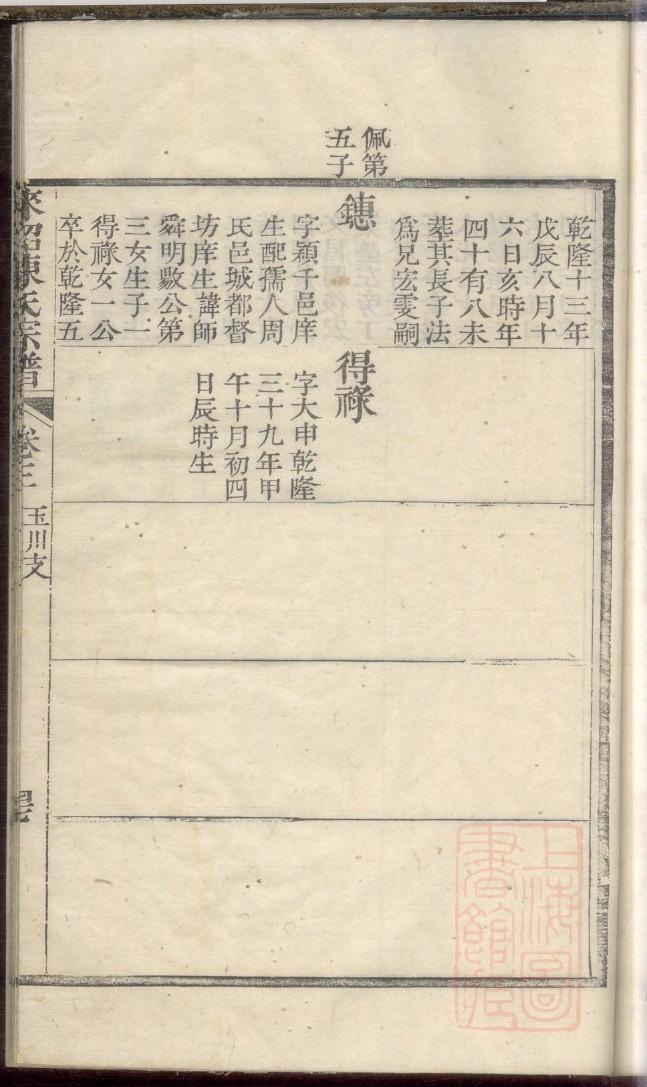 佩第
五子
乾隆十三年
戊辰八月十
六日亥時年
四十有八未
葬其長子法
爲兄宏雯嗣
鏸
字穎千邑庠
生配孺人周
氏邑城都督
坊庠生諱師
舜明數公第
三女生子一
得祿女一公
卒於乾隆五
得祿
字大申乾隆
三十九年甲
午十月初四
日辰時生
陳氏宗譜
卷三
玉川支
上海圖
書館藏